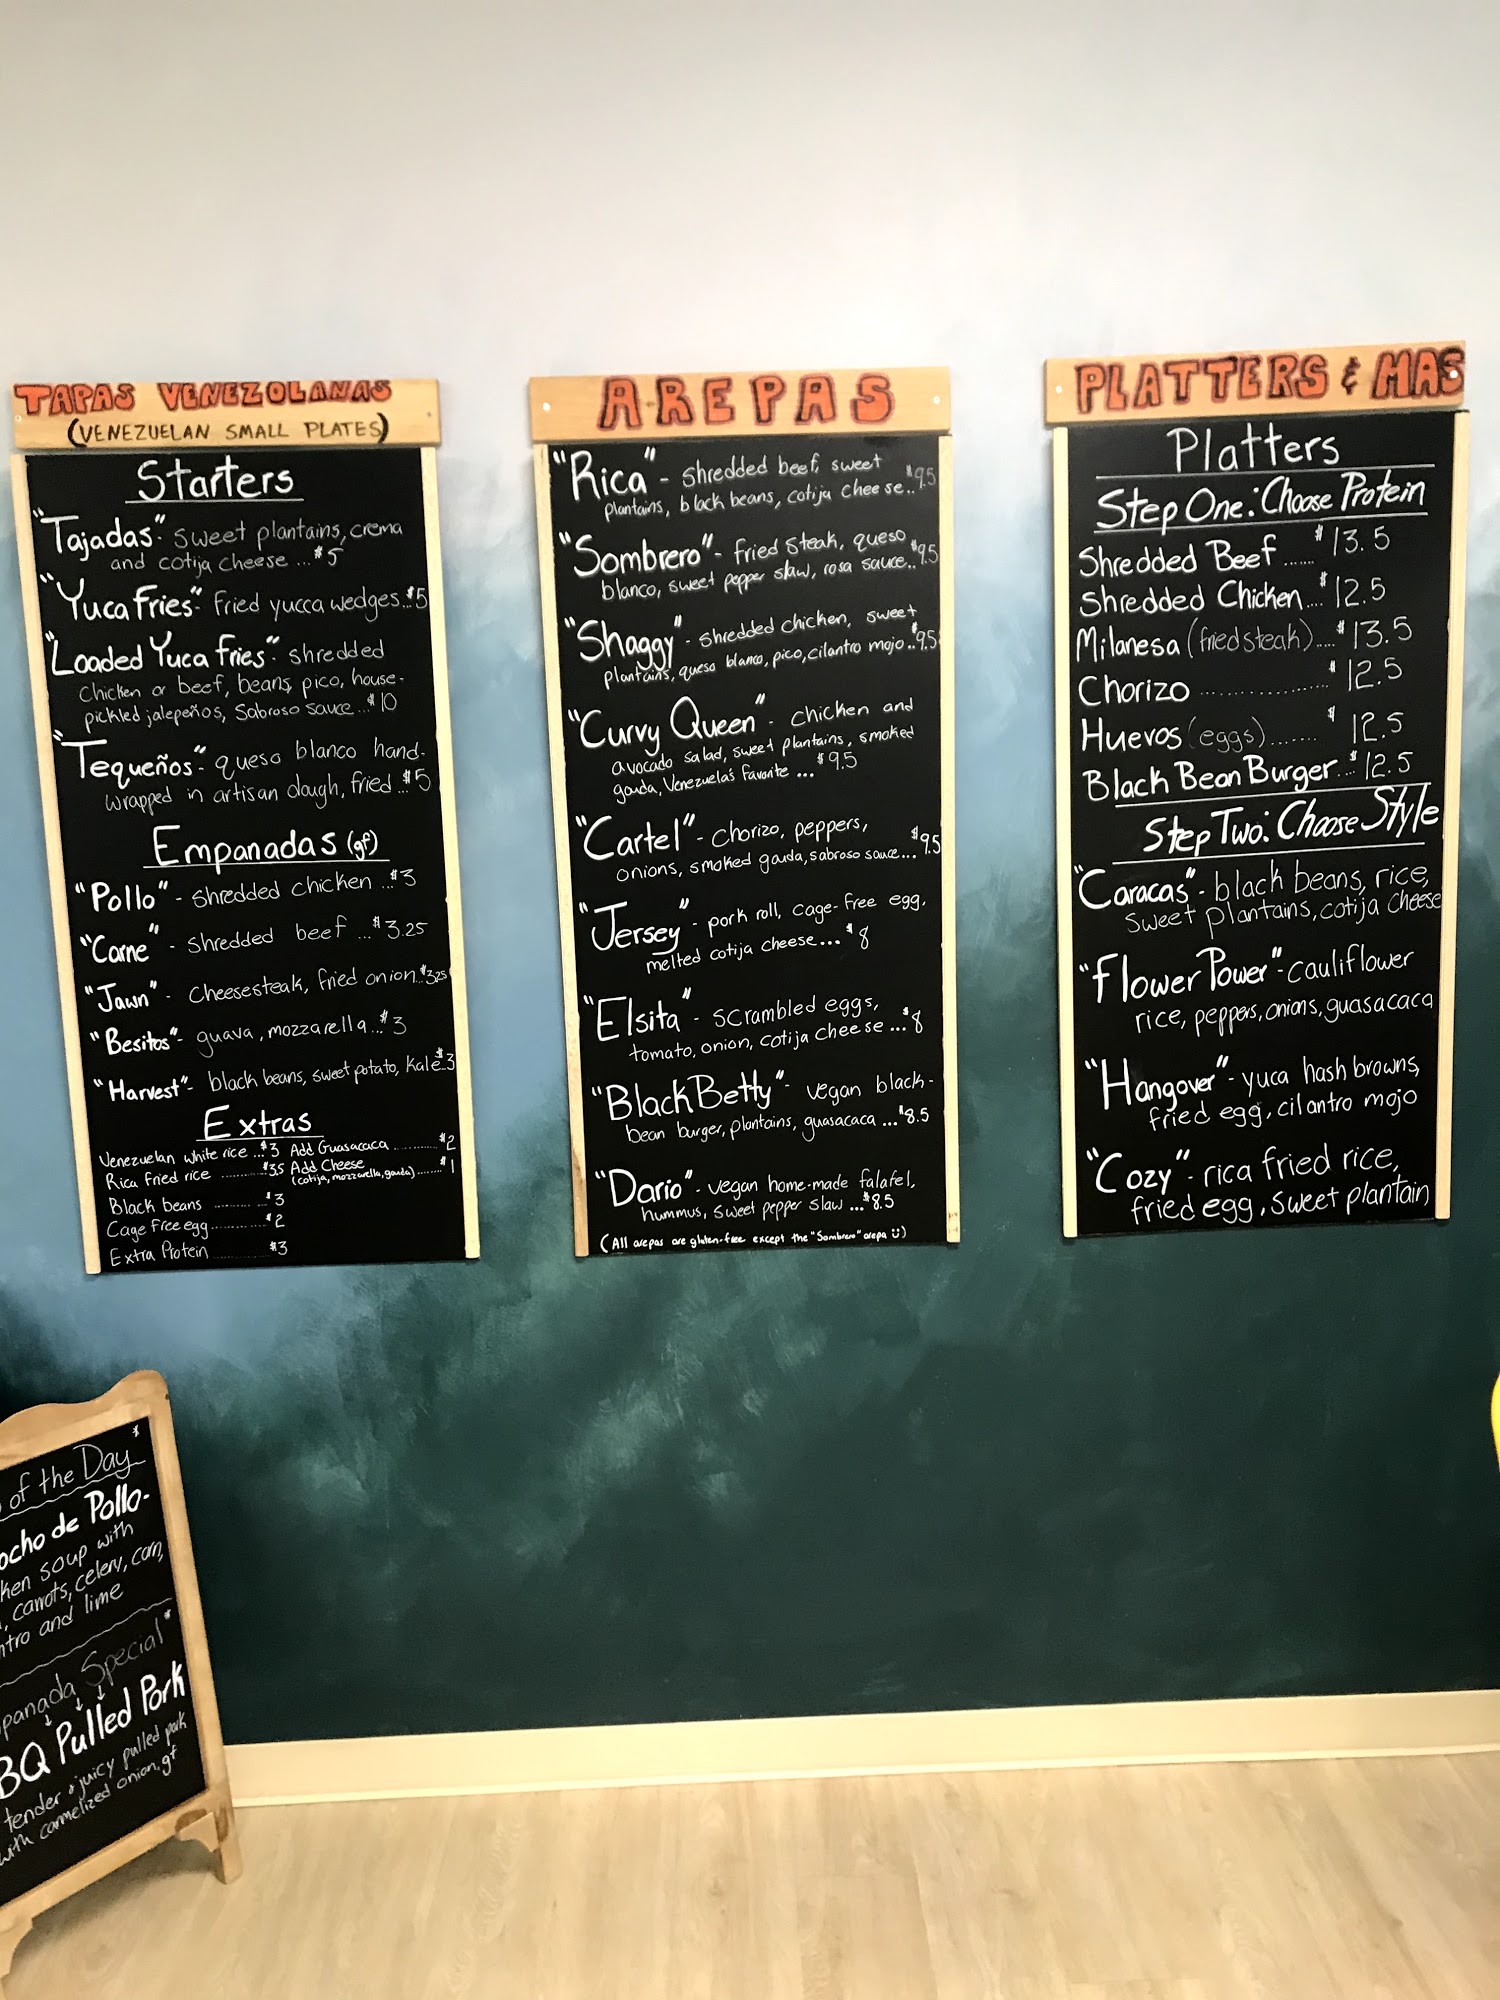 TAPAS VENEZOLANAS
(VENEZUELAN SMALL PLATES)
Starters
"Tajadas"- sweet plantains, crema
and cotija cheese ... $5
"Yuca Fries"- Fried yucca wedges...$5
"Loaded Yuca Fries"- shredded
chicken or beef, beans, pico, house-
pickled jalepeños, Sabroso sauce...$10
"Tequeños"- queso blanco hand-
wrapped in artisan dough, fried...$5
Empanadas (gf)
"Pollo" - shredded chicken ...$3
"Carne" - shredded beef ...$3.25
"Jawn" - Cheesesteak, fried onion...$3.25
"Besitos"- guava, mozzarella...$3
"Harvest"- black beans, sweet potato, kale...$3
Extras
Venezuelan white rice ...$3 Add Guasacaca ............ $2
Rica fried rice ............ $3.5 Add Cheese
(cotija, mozzarella, gouda) ....... $1
Black beans .......... $3
Cage Free egg ........... $2
Extra Protein ........... $3
AREPAS
"Rica" - shredded beef, sweet
plantains, black beans, cotija cheese..$9.5
"Sombrero" - fried steak, queso
blanco, sweet pepper slaw, rosa sauce..$9.5
"Shaggy" - shredded chicken, sweet
plantains, queso blanco, pico, cilantro mojo..$9.5
"Curvy Queen" - chicken and
avocado salad, sweet plantains, smoked
gouda, Venezuela's favorite ... $9.5
"Cartel" - chorizo, peppers,
onions, smoked gouda, sabroso sauce...$9.5
"Jersey" - pork roll, cage-free egg,
melted cotija cheese...$8
"Elsita" - scrambled eggs,
tomato, onion, cotija cheese ...$8
"Black Betty"- vegan black-
bean burger, plantains, guasacaca ...$8.5
"Dario" - vegan home-made falafel,
hummus, sweet pepper slaw ...$8.5
(All arepas are gluten-free except the "Sombrero" arepa Ü)
PLATTERS & MAS
Platters
Step One: Choose Protein
Shredded Beef ...... $13.5
Shredded Chicken.... $12.5
Milanesa (fried steak)....$13.5
Chorizo .................. $12.5
Huevos (eggs)....... $12.5
Black Bean Burger...$12.5
Step Two: Choose Style
"Caracas" - black beans, rice,
sweet plantains, cotija cheese
"Flower Power"- cauliflower
rice, peppers, onions, guasacaca
"Hangover" - yuca hash browns,
fried egg, cilantro mojo
"Cozy" - rica fried rice,
fried egg, sweet plantain
of the Day *
ocho de Pollo-
ken soup with
, carrots, celery, corn,
ntro and lime
panada Special *
BQ Pulled Pork
tender & juicy pulled pork
with carmelized onion. gf